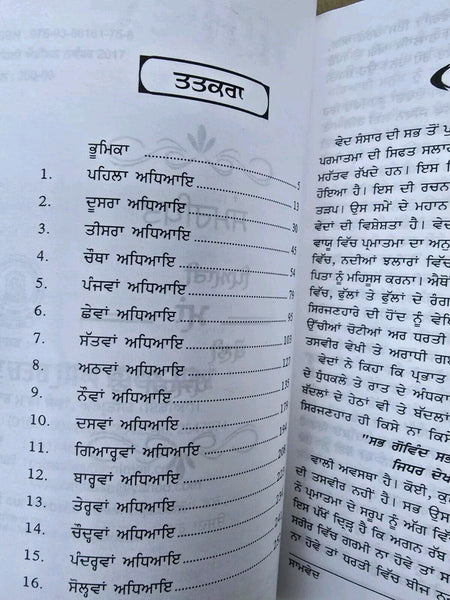 ਤਤਕਰਾ
ਭੂਮਿਕਾ 5
1. ਪਹਿਲਾ ਅਧਿਆਇ 13
2. ਦੂਸਰਾ ਅਧਿਆਇ 30
3. ਤੀਸਰਾ ਅਧਿਆਇ 45
4. ਚੌਥਾ ਅਧਿਆਇ 54
5. ਪੰਜਵਾਂ ਅਧਿਆਇ 79
6. ਛੇਵਾਂ ਅਧਿਆਇ 95
7. ਸੱਤਵਾਂ ਅਧਿਆਇ 103
8. ਅਠਵਾਂ ਅਧਿਆਇ 127
9. ਨੌਵਾਂ ਅਧਿਆਇ
10. ਦਸਵਾਂ ਅਧਿਆਇ 179
11. ਗਿਆਰ੍ਹਵਾਂ ਅਧਿਆਇ 194
12. ਬਾਰ੍ਹਵਾਂ ਅਧਿਆਇ
13. ਤੇਰ੍ਹਵਾਂ ਅਧਿਆਇ
14. ਚੌਦ੍ਹਵਾਂ ਅਧਿਆਇ
15. ਪੰਦਰ੍ਹਵਾਂ ਅਧਿਆਇ
16. ਸੋਲ੍ਹਵਾਂ ਅਧਿਆਇ
ਵੇਦ ਸੰਸਾਰ ਦੀ ਸਭ ਤੋਂ
ਪਰਮਾਤਮਾ ਦੀ ਸਿਫਤ ਸਲਾਹ
ਮਹੱਤਵ ਰੱਖਦੇ ਹਨ। ਇਸ
ਹੋਇਆ ਹੈ। ਇਸ ਦੀ ਰਚਨਾ
ਤੜਪ। ਉਸ ਸਮੇਂ ਦੇ ਮਹਾਨ
ਵੇਦਾਂ ਦੀ ਵਿਸ਼ੇਸ਼ਤਾ ਹੈ।
ਵਾਯੂ ਵਿੱਚ ਪ੍ਰਮਾਤਮਾ ਦਾ
ਵਿੱਚ, ਨਦੀਆਂ ਝਲਾਰਾਂ ਵਿੱਚ
ਪਿਤਾ ਨੂੰ ਮਹਿਸੂਸ ਕਰਨਾ।
ਵਿੱਚ, ਫੁੱਲਾਂ ਤੇ ਫੁੱਲਾਂ ਦੇ ਰੰਗ
ਸਿਰਜਣਹਾਰੇ ਦੀ ਹੋਂਦ ਨੂੰ
ਉੱਚੀਆਂ ਚੋਟੀਆਂ ਅਰ ਧਰਤੀ
ਤਸਵੀਰ ਵੇਖੀ ਤੇ ਅਰਾਧੀ
ਵੇਦਾਂ ਨੇ ਕਿਹਾ ਕਿ ਪ੍ਰਭਾਤ
ਦੇ ਧੁੰਧਕਲੇ ਤੇ ਰਾਤ ਦੇ
ਬੱਦਲਾਂ ਦੇ ਹੇਠਾਂ ਵੀ ਤੇ ਬੱਦਲਾਂ
ਸਿਰਜਣਹਾਰ ਹੀ ਕਿਸੇ ਨਾ ਕਿਸੇ
"ਸਭ ਗੋਵਿੰਦ ਸਭ
ਜਿਧਰ ਦੇਖ
ਵਾਲੀ ਅਵਸਥਾ ਹੈ। ਕੋਈ,
ਦੀ ਤਸਵੀਰ ਨਹੀਂ ਹੈ। ਸਭ ਉਸ
ਨੇ ਪ੍ਰਮਾਤਮਾ ਦੇ ਸਰੂਪ ਨੂੰ ਅੱਗ ਵਿੱਚ
ਇਸ ਪੱਖੋਂ ਦ੍ਰਿੜ ਹੈ ਕਿ ਅਗਨ ਰੱਬ
ਸਰੀਰ ਵਿੱਚ ਗਰਮੀ ਨਾ ਹੋਵੇ ਤਾਂ
ਨਾ ਹੋਵੇ ਤਾਂ ਧਰਤੀ ਵਿੱਚ ਬੀਜ ਨਹੀਂ
ਸਾਮਵੇਦ